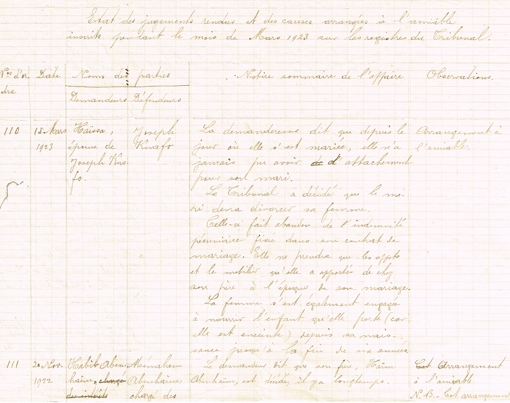 Etat des jugements rendus et des causes arrangées à l'amiable
inscrits pendant le mois de Mars 1923 sur les registres du Tribunal.
Nos d'or Date Noms des parties Notice sommaire de l'affaire Observations.
dre
Demandeurs Défendeurs
110 15 Mars Joseph La demanderesse dit que depuis le Arrangement à
1923 épouse de Knafo jour où elle s'est mariée, elle n'a l'amiable.
Joseph Kna jamais pu avoir d'attachement
fo. pour son mari.
Le Tribunal a décidé que le ma
ri devra divorcer sa femme.
Celle-ci fait abandon de l'indemnité
pécuniaire fixée dans son contrat de
mariage. Elle ne prendra que les effets
et le mobilier qu'elle a apportés de chez
son père à l'époque de son mariage.
La femme s'est également engagée
à nourrir l'enfant qu'elle porte (car
elle est enceinte) depuis sa nais-
sance jusqu'à la fin de
111 20 Nov. Le demandeur dit que son père, Haïm Cet Arrangement
1922 chargé Abenhaïm, est décédé, il y a longtemps. à l'amiable
chargé des N.B. Cet arrangement